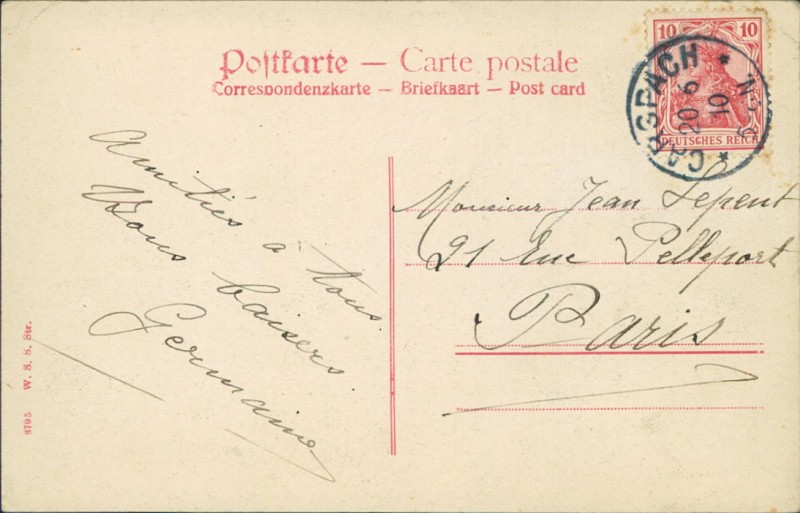 Postkarte — Carte postale
Correspondenzkarte — Briefkaart — Post card
10 10
DEUTSCHES REICH
CARSPACH
20 6
10
5-6 N.
Amitiés à tous.
Bons baisers.
Germaine
Monsieur Jean Lepent
21 Rue Pelleport
Paris
8795 W. S. S. Str.